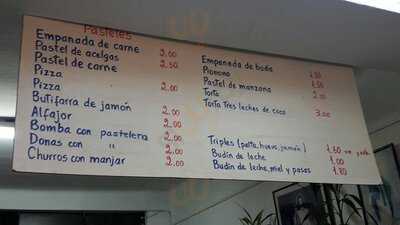 Pasteles
Empanada de carne 2.00
Pastel de acelgas 2.50
Pastel de carne
Pizza 2.00
Pizza
Butifarra de jamón 2.00
Alfajor 2.00
Bomba con pastelera 2.00
Donas con " 2.00
Churros con manjar 2.00
Empanada de boda
Pionono 1.50
Pastel de manzona 1.50
Torta 2.00
Torta Tres leches de coco 3.00
Triples (palta, huevo, jamón) 1.60
Budín de leche 1.00
Budín de leche, miel y pasas 1.80